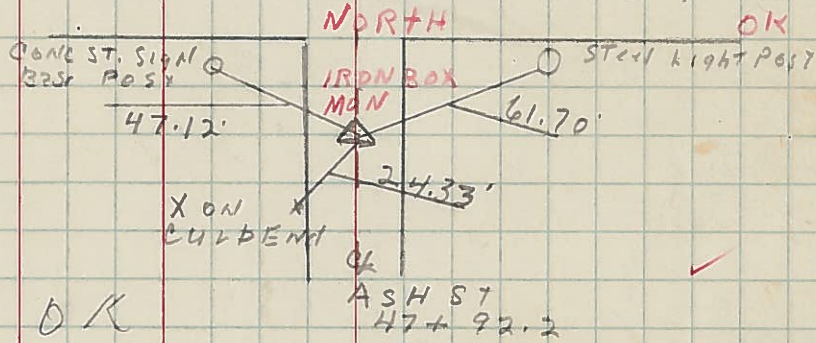 NORTH
OK
CONC ST. SIGN
BASE POST
STEEL LIGHT POST
IRON BOX
MON
47.12'
61.70'
24.33'
X ON
CULDEND
℄
ASH ST
47+92.2
OK